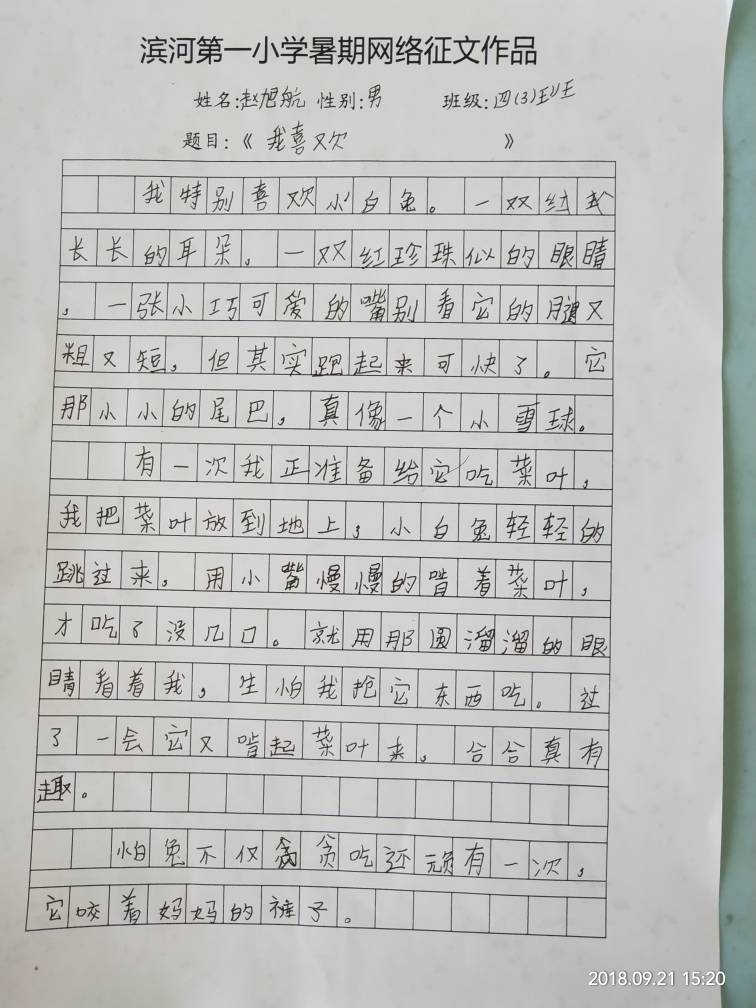 滨河第一小学暑期网络征文作品
姓名:赵旭航 性别:男 班级:四(3)班
题目:《 我喜欢 》
我特别喜欢小白兔。一双红
长长的耳朵,一双红珍珠似的眼睛
,一张小巧可爱的嘴别看它的腿又
粗又短,但其实跑起来可快了。它
那小小的尾巴,真像一个小雪球。
有一次我正准备给它吃菜叶,
我把菜叶放到地上,小白兔轻轻的
跳过来,用小嘴慢慢的啃着菜叶,
才吃了没几口。就用那圆溜溜的眼
睛看着我,生怕我抢它东西吃。过
了一会它又啃起菜叶来,合合真有
趣。
怕兔不仅贪贪吃还顽有一次,
它咬着妈妈的裤子。
2018.09.21 15:20